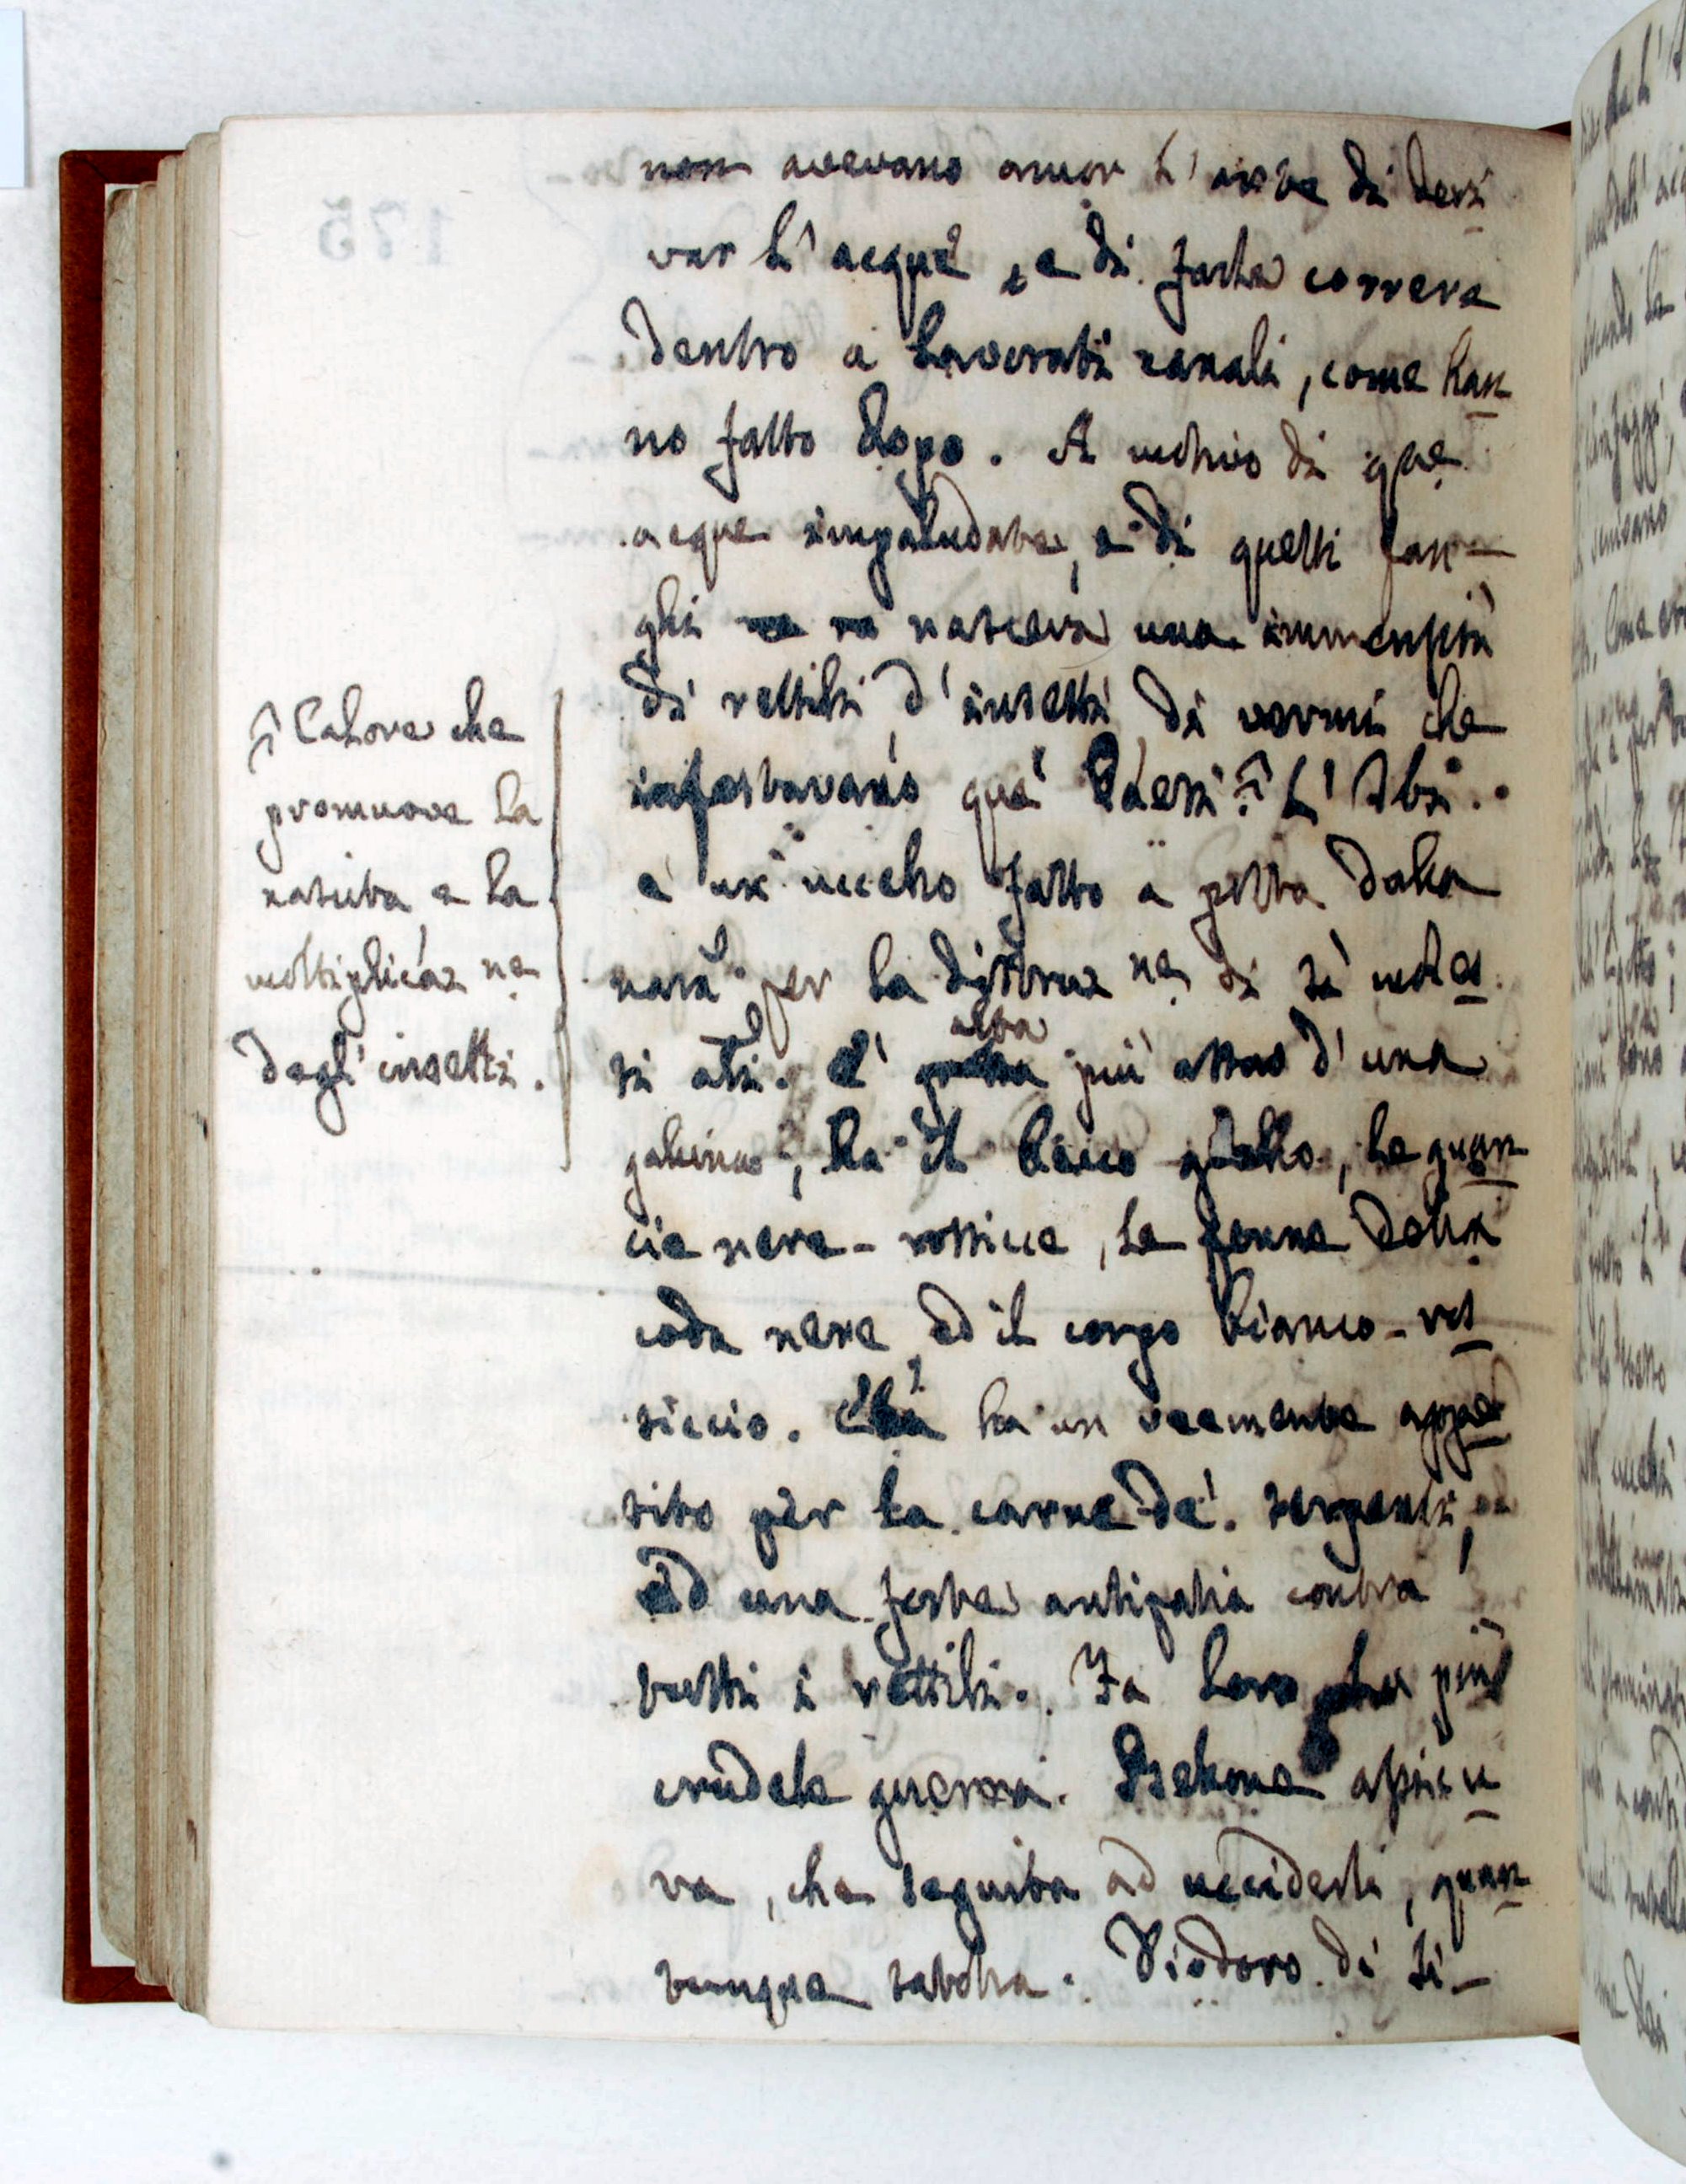 non avevano ancor l'arte di deri
var l'acque, e di farle correre
dentro a lavorati canali, come han
no fatto dopo. A motivo di que
acque impaludate, e di quelli fan-
ghi nasceva una immensità
di rettili, d'insetti, di vermi che
infestavano que' Paesi. L'Ibi
è un uccello fatto a posta dalla
nară per la distruz ne di sì moles
ti ati. E' alta più assai d'una
gallina, ha il becco giallo, le guan
cie nere-rossicce, le penne della
coda nere, ed il corpo bianco-ros
siccio. ha un veemente appe
tito per la carne de' serpenti,
ed una forte antipatia contra
tutti i rettili. Fa loro la più
crudele guerra. Belone assicu
ra, che seguita ad ucciderli, quan
tunque satolla. Diodoro di Si-
Calore che
promuove la
nascita e la
moltiplicaz ne
degl'insetti.
175